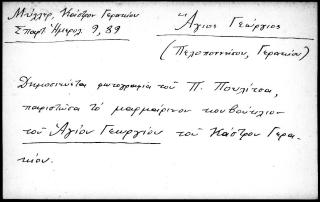 Μίλλερ, Κάστρον Γερακίου
Σπαρτ. Ἡμερολ. 9, 89
Ἅγιος Γεώργιος
(Πελοποννήσου, Γερακίου)
Δημοσιεύεται φωτογραφία τοῦ Π. Πουλίτσα,
παριστῶσα τὸ μαρμάρινον κουβούκλιον
τοῦ Ἁγίου Γεωργίου τοῦ Κάστρου Γερα-
κίου.